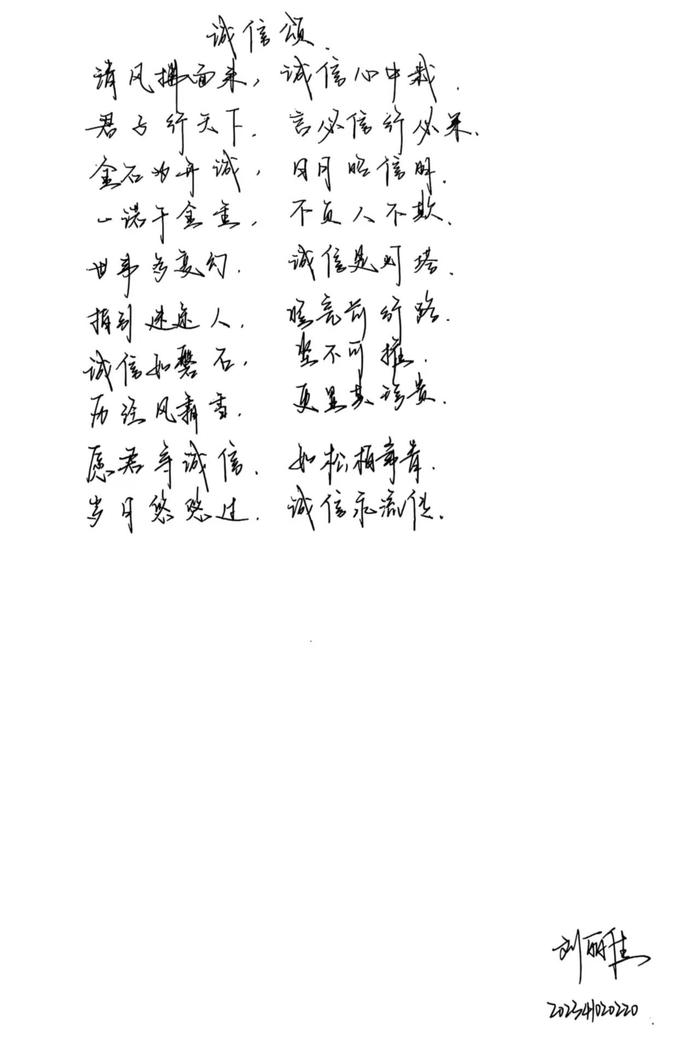 诚信颂.
清风拂面来，诚信心中栽.
君子行天下. 言必信行必果.
金石为开诚， 日月照信明.
一诺千金重， 不负人不欺.
世事多变幻. 诚信是灯塔.
指引迷途人. 照亮前行路.
诚信如磐石， 坚不可摧.
历经风霜雪. 更显其珍贵.
愿君守诚信. 如松柏常青.
岁月悠悠过. 诚信永流传.